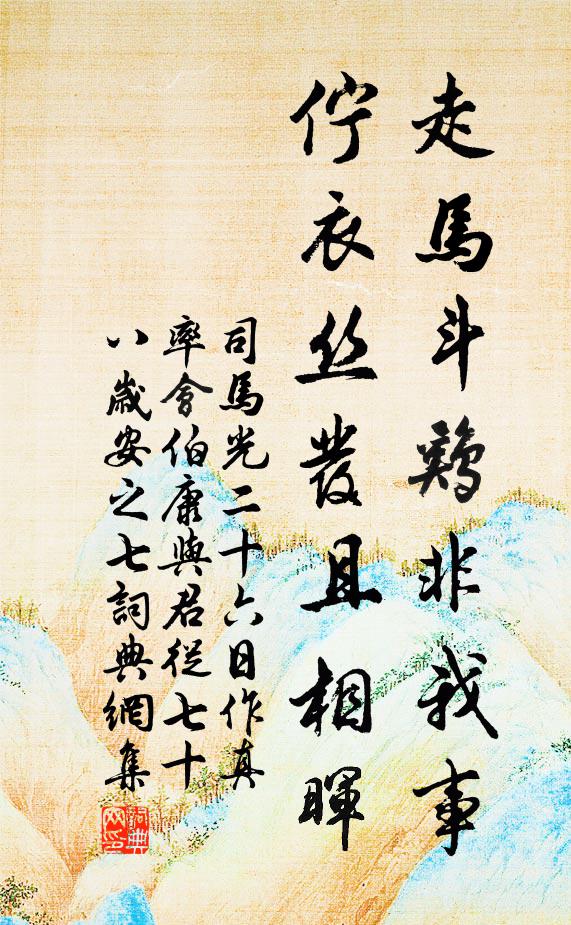 走馬斗鷄非我事
佇衣丝發且相暉
司馬光二十六日作真
率會伯康與君從七十
八歲安之七詞典網集
詞典
网印